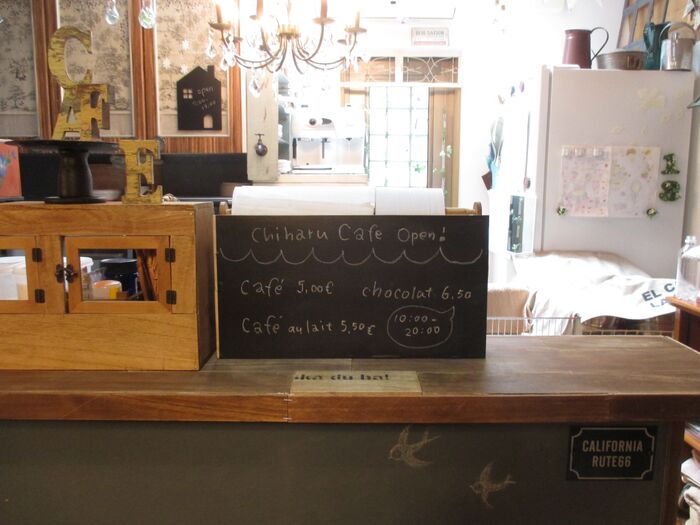 CAFE
open
Chiharu Cafe Open!
Café 5,00€
chocolat 6.50
Café au lait 5,50€
10:00-
20:00
ka du ha!
CALIFORNIA
RUTE66
EL C
LA
13